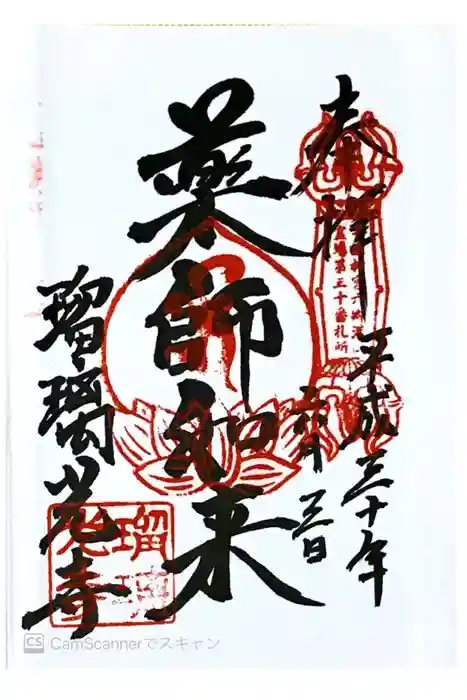 奉拝
霊場第三十番札所
平成三十年
三日
薬師如来
瑠璃光寺
瑠璃
CS CamScannerでスキャン